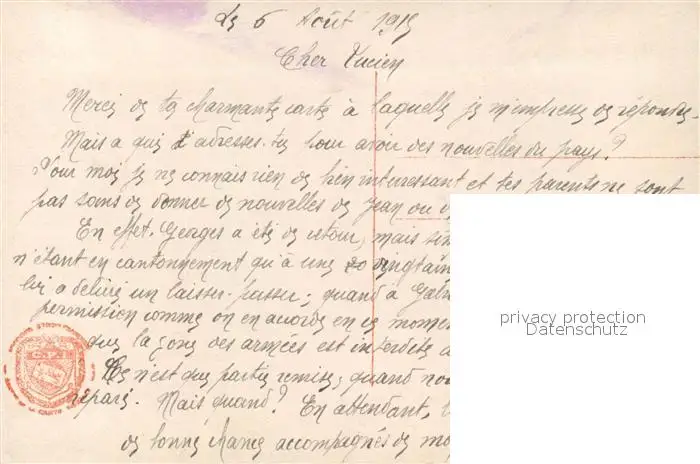 Le 6 Août 1915
Cher Lucien
Merci de ta charmante carte à laquelle je m'empresse de répondre.
Mais a qui t'adresses-tu pour avoir des nouvelles du pays?
Pour moi je ne connais rien de bien interressant et tes parents ne sont
pas sans de donner de nouvelles de Jean ou d
En effet. Georges a été de retour, mais
n'étant en cantonnement qu'à une vingtain
lui a délivré un laisser-passer; quand à
permission comme on en accorde en ce momen
que la zone des armées est interdite a
Ce n'est que partie remise, quand no
réparé. Mais quand? En attendant,
de bonne chance accompagnés de
privacy protection
Datenschutz